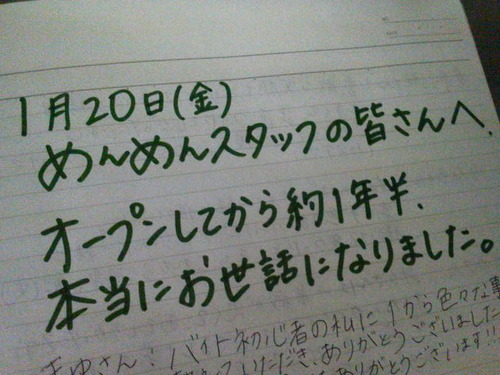 1月20日(金)
めんめんスタッフの皆さんへ.
オープンしてから約1年半、
本当にお世話になりました。
さん:バイト初心者の私に1から色々な事
いただき、ありがとうございました
ありがとうございます!!